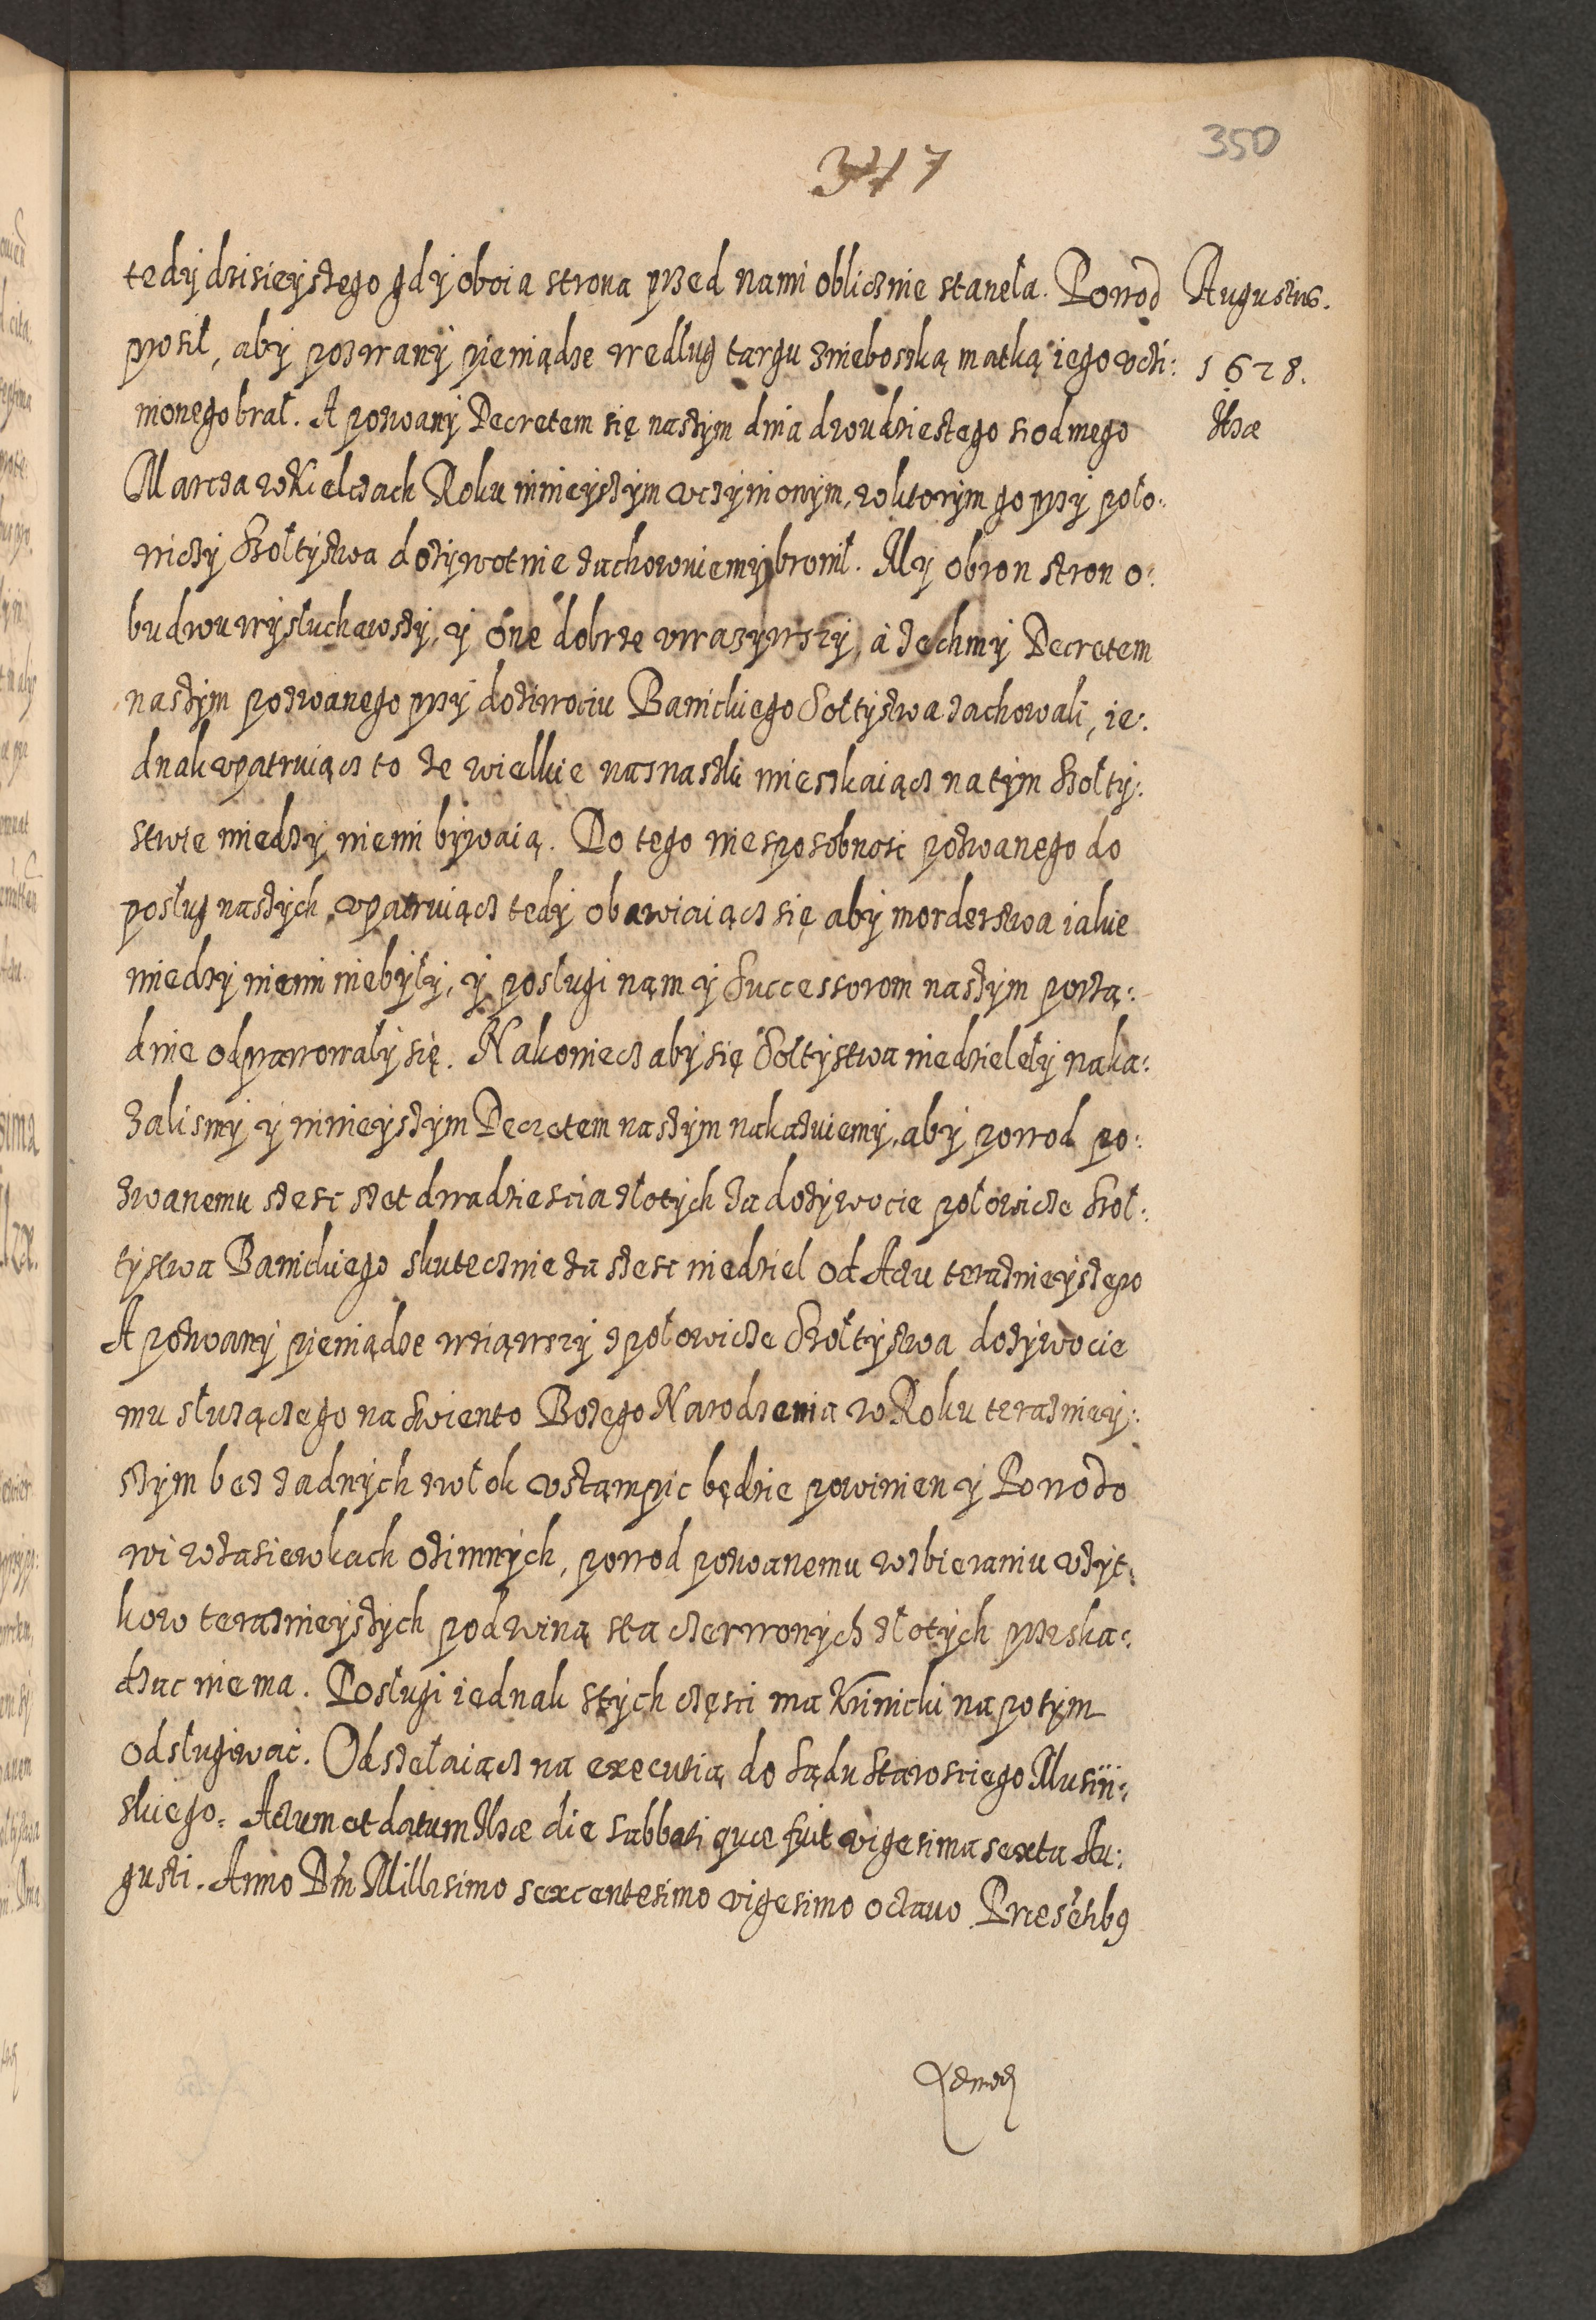 350
347
tedy dzisieyszego gdy oboia strona przed nami oblicznie staneła. Powod
Augustus.
prosił, aby pozwany pieniądze według targu znieboszką matką iego vczi:
1628.
nionego brał. A pozwany Decretem się naszym dnia dwudziestego siodmego
Ilzæ
Marcza w Kielczach Roku ninieyszym vczynionym, wktorym go przy poło:
wiczy Szołtystwa dożywotnie zachowuiemy bronił. My obron stron o:
budwu wysłuchawszy, y one dobrze vważywszy, a żechmy Decretem
naszym pozwanego przy dożiwociu Banickiego Sołtystwa zachowali, ie:
dnak vpatruiącz to że wielkie nasnaszki mieszkaiącz na tym Szołty:
stwie miedzy niemi bywaią. Do tego niesposobnosc pozwanego do
posług naszych, vpatruiącz tedy obawiaiącz się aby morderstwa iakie
miedzy niemi niebyły, y posługi nąm y Successorom naszym porzą:
dnie odprawowały się. Nakoniecz aby się Sołtystwa niedzieleły naka:
zalismy y ninieyszym Decretem naszym nakazuiemy, aby powod po:
zwanemu szesc szet dwadziescia złotych za dożywocie połowicze Szoł:
tystwa Banickiego skutecznie za szesc niedziel od Actu terazneiyszego
A pozwany pieniądze wziąwszy społowicze Szołtystwa dożywocie
mu służączego na Swiento Bożego Narodzenia w Roku terazniey:
szym bez żadnych zwłok vstąmpic będzie powinien y Powodo
wi wzasiewkach oźimnych, powod pozwanemu wzbieraniu vżyt:
kow teraznieyszych pod winą sta czerwonych złotych przeska:
dzac niema. Posługi iednak stych częsci ma Krinicki na potym
odsługiwac. Odszełaiącz na executią do Sądu Starosciego Musiin:
skiego. Actum et datum Ilzæ die Sabbati quæ fuit vigesima sexta Au:
gusti. Anno Dni Millesimo sexcentesimo vigesimo octavo Præsetibus